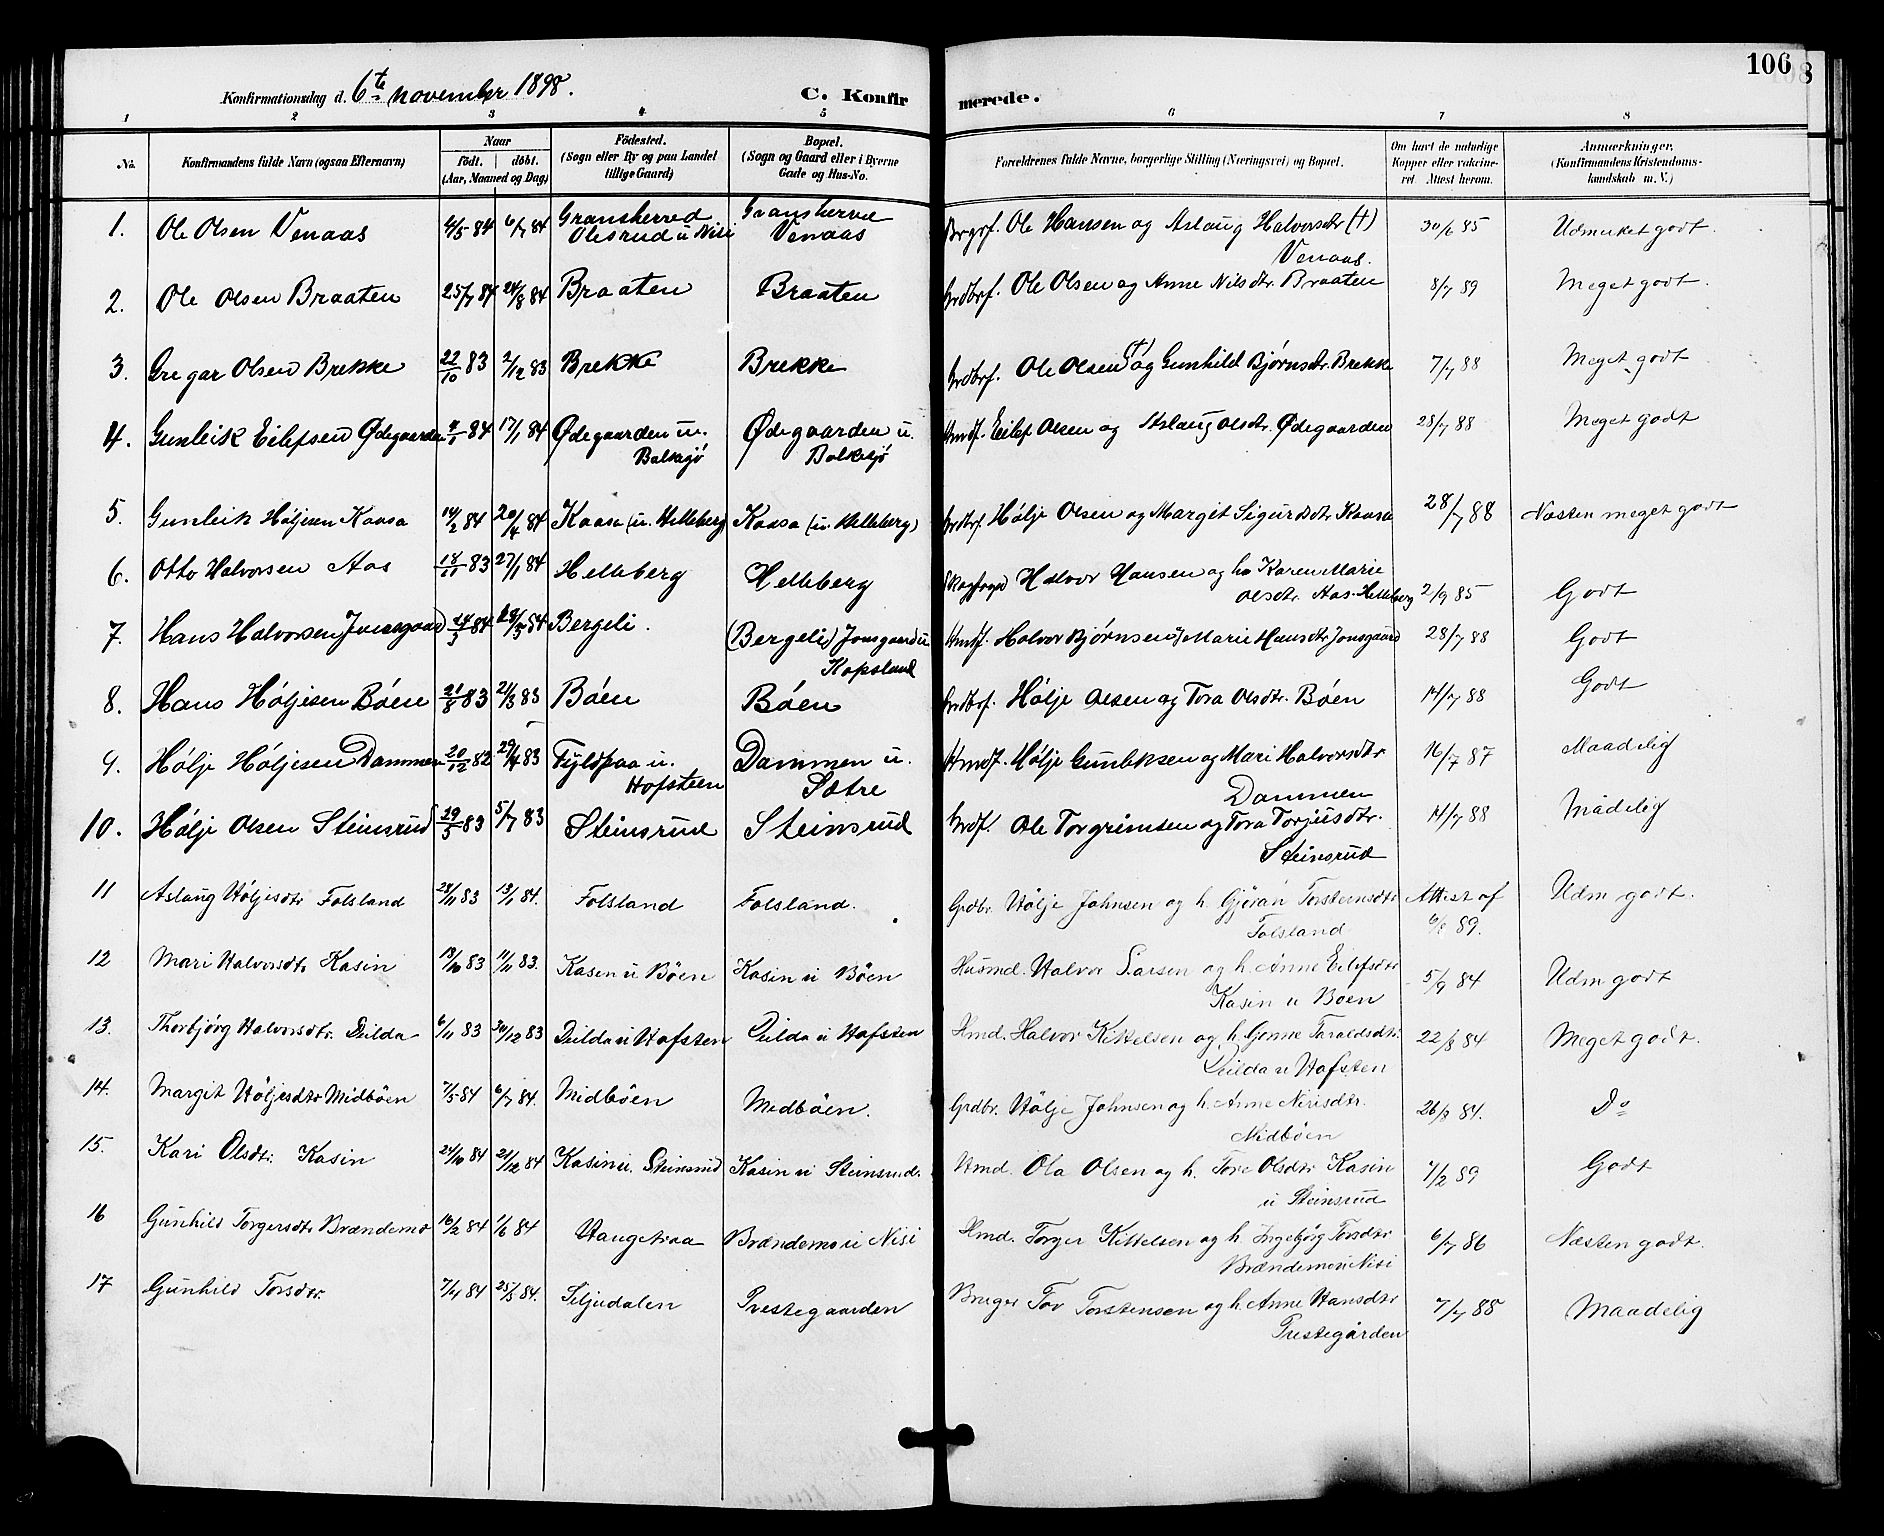 106
Konfirmationsdag d. 6te november 1898.
C. Konfirmerede.
1 2 3 4 5 6 7 8
No. Konfirmandens fulde Navn (ogsaa Efternavn) Naar födt. döbt. (Aar, Maaned og Dag) Födested. (Sogn eller By og paa Landet tillige Gaard) Bopæl. (Sogn og Gaard eller i Byerne Gade og Hus-No. Forældrenes fulde Navne, borgerlige Stilling (Næringsvei) og Bopæl. Om havt de naturlige Kopper eller vakcineret Attest herom. Anmærkninger. (Konfirmandens Kristendomskundskab m. V.)
1. Ole Olsen Venaas 4/5 84 6/7 84 Gransherred Olesrud u Nisi Gransherred Venaas Brgrf. Ole Hansen og Aslaug Halvorsdtr (†) Venaas. 30/6 85 Udmerket godt.
2. Ole Olsen Braaten 25/7 84 24/8 84 Braaten Braaten Grdbrf. Ole Olsen og Anne Nilsdtr. Braaten 8/7 89 Meget godt.
3. Gregar Olsen Brekke 22/10 83 2/12 83 Brekke Brekke Grdbrf. Ole Olsen (†) og Gunhild Bjørnsdtr. Brekke 7/7 88 Meget godt
4. Gunleik Eilefsen Ødegaarden 84 17/1 84 Ødegaarden u. Bolkesjø Ødegaarden u. Bolkesjø Hmdf. Eilef Olsen og Aslaug Olsdtr. Ødegaarden 28/7 88 Meget godt
5. Gunleik Høljesen Kaasa 14/2 84 20/4 84 Kaasa (u. Helleberg) Kaasa (u. Helleberg) Grdbrf. Hølje Olsen og Margit Sigurdsdtr Kaasa 28/7 88 Næsten meget godt
6. Otto Halvorsen Aas 18/11 83 27/1 84 Helleberg Helleberg Skogfoged Halvor Hansen og h. Karen Marie Olsdtr. Aas-Helleberg 2/9 85 Godt
7. Hans Halvorsen Jonsgaard 84 84 Bergeli. (Bergeli) Jonsgaard u Kopsland Hmdf. Halvor Bjørnsen og Marie Hansdtr Jonsgaard 28/7 88 Godt
8. Hans Høljesen Bøen 83 21/3 83 Bøen Bøen Grdbrf. Hølje Olsen og Tora Olsdtr. Bøen 14/7 88 Godt
9. Hølje Høljesen Dammen 20/12 82 29/4 83 Fyldpaa u. Hofsteen Dammen u. Sætre Hmdf. Hølje Gunleksen og Mari Halvorsdtr Dammen 16/7 87 Maadelig
10. Hølje Olsen Steinsrud 29/5 83 5/7 83 Steinsrud Steinsrud Grdf. Ole Torgrimsen og Tora Torjusdtr. Steinsrud 14/7 88 Mådelig
11 Aslaug Høljesdtr Folsland 28/11 83 13/1 84. Folsland Folsland. Grdbr. Hölje Johnsen og h. Gjöran Torsteinsdtr Folsland Attest af 6/8 89. Udm godt.
12 Mari Halvorsdtr Kasin 13/10 83 11/11 83. Kasen u Böen Kasin u Böen Husmd. Halvor Larsen og h. Anne Eilefsdtr Kasin u Böen 5/9 84 Udm godt
13. Thorbjörg Halvorsdtr. Deilda 6/11 83 30/12 83 Deilda u Hofsten Deilda u Hofsten Hmd. Halvor Kittelsen og h. Gunne Taraldsdtr. Deilda u Hofsten 22/8 84 Meget godt.
14. Margit Höljesdtr Midböen 7/5 84 6/7 84. Midböen Midböen. Grdbr. Hölje Johnsen og h. Anne Nirisdtr. Midböen 26/8 84. Do
15. Kari Olsdtr. Kasin 24/10 84 21/12 84 Kasin u. Steinsrud Kasin u Steinsrud. Hmd. Ola Olsen og h. Tore Olsdtr Kasin u Steinsrud 7/2 89 Godt
16 Gunhild Torgersdtr Brændemo 16/2 84 1/6 84 Haugetraa Brændemo u Nisi Hmd. Torger Kittelsen og h. Ingebjörg Torsdtr Brændemo u Nisi 6/7 86 Næsten godt.
17 Gunhild Torsdtr. 7/4 84 25/5 84. Siljudalen Prestegaarden Bruger Tov Torstensen og h. Anne Hansdtr Prestegården 7/7 88 Maadelig